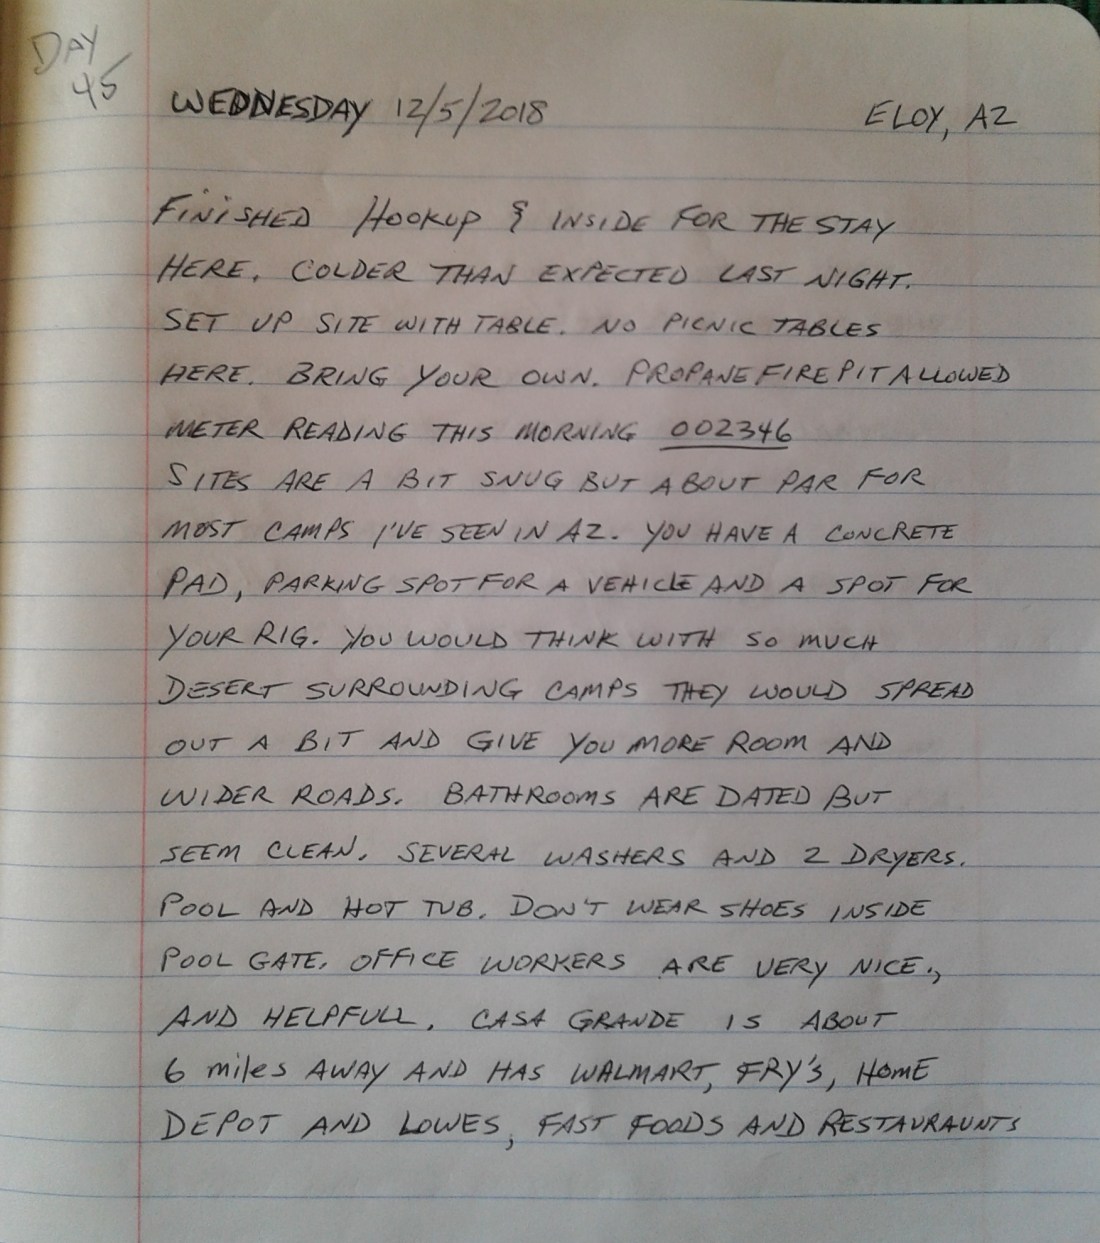 DAY
45
WEDNESDAY 12/5/2018 ELOY, AZ
FINISHED HOOKUP & INSIDE FOR THE STAY
HERE. COLDER THAN EXPECTED LAST NIGHT.
SET UP SITE WITH TABLE. NO PICNIC TABLES
HERE. BRING YOUR OWN. PROPANE FIRE PIT ALLOWED
METER READING THIS MORNING 002346
SITES ARE A BIT SNUG BUT ABOUT PAR FOR
MOST CAMPS I'VE SEEN IN AZ. YOU HAVE A CONCRETE
PAD, PARKING SPOT FOR A VEHICLE AND A SPOT FOR
YOUR RIG. YOU WOULD THINK WITH SO MUCH
DESERT SURROUNDING CAMPS THEY WOULD SPREAD
OUT A BIT AND GIVE YOU MORE ROOM AND
WIDER ROADS. BATHROOMS ARE DATED BUT
SEEM CLEAN. SEVERAL WASHERS AND 2 DRYERS.
POOL AND HOT TUB. DON'T WEAR SHOES INSIDE
POOL GATE. OFFICE WORKERS ARE VERY NICE.,
AND HELPFULL. CASA GRANDE IS ABOUT
6 miles AWAY AND HAS WALMART, FRY'S, HOME
DEPOT AND LOWES, FAST FOODS AND RESTAURAUNTS